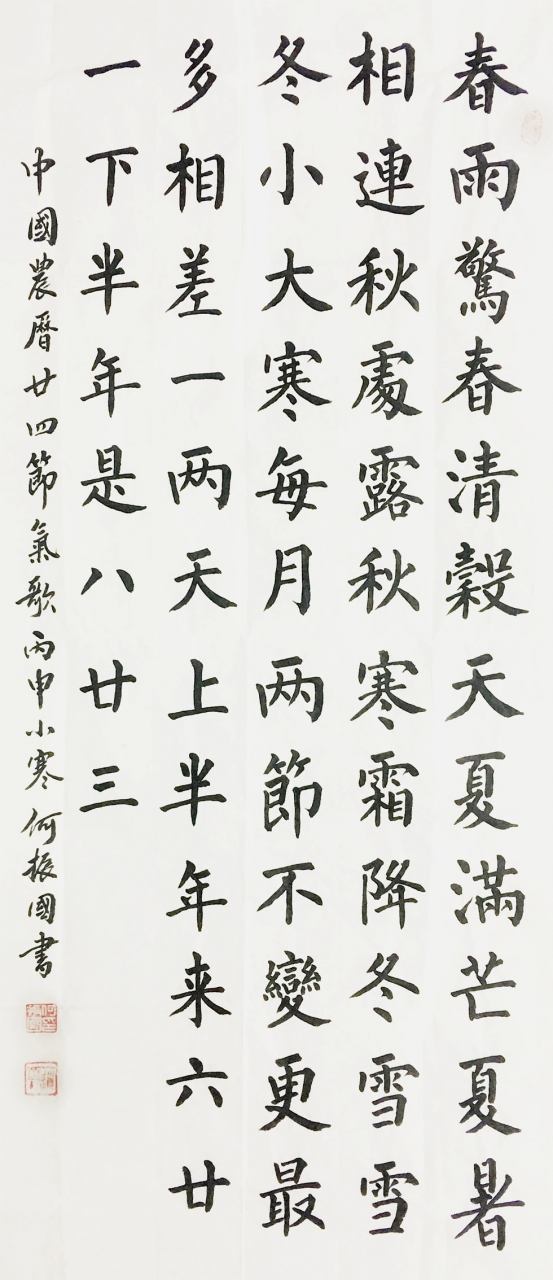 春雨驚春清穀天夏滿芒夏暑
相連秋處露秋寒霜降冬雪雪
冬小大寒每月两節不變更最
多相差一两天上半年来六廿
一下半年是八廿三
中國農曆廿四節氣歌丙申小寒何振國書